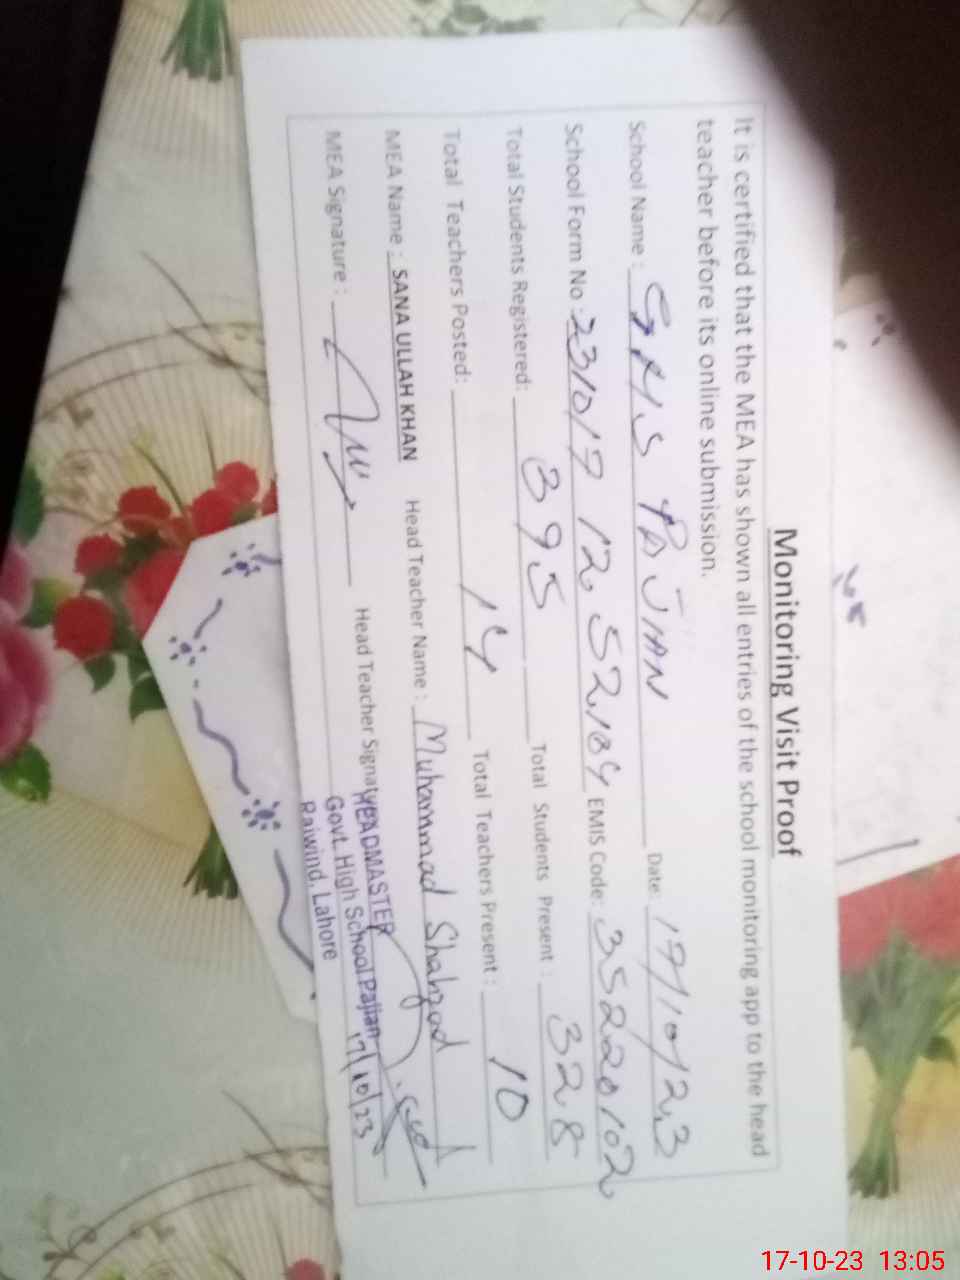 Monitoring Visit Proof
It is certified that the MEA has shown all entries of the school monitoring app to the head
teacher before its online submission.
School Name : GHS PAJIAN Date: 17/10/23
School Form No : 2310171252184 EMIS Code: 35220102
Total Students Registered: 395 Total Students Present : 328
Total Teachers Posted: 14 Total Teachers Present : 10
MEA Name : SANA ULLAH KHAN Head Teacher Name : Muhammad Shahzad
MEA Signature : Head Teacher Signature
HEADMASTER
Govt. High School Pajian
Raiwind, Lahore
17/10/23
17-10-23 13:05